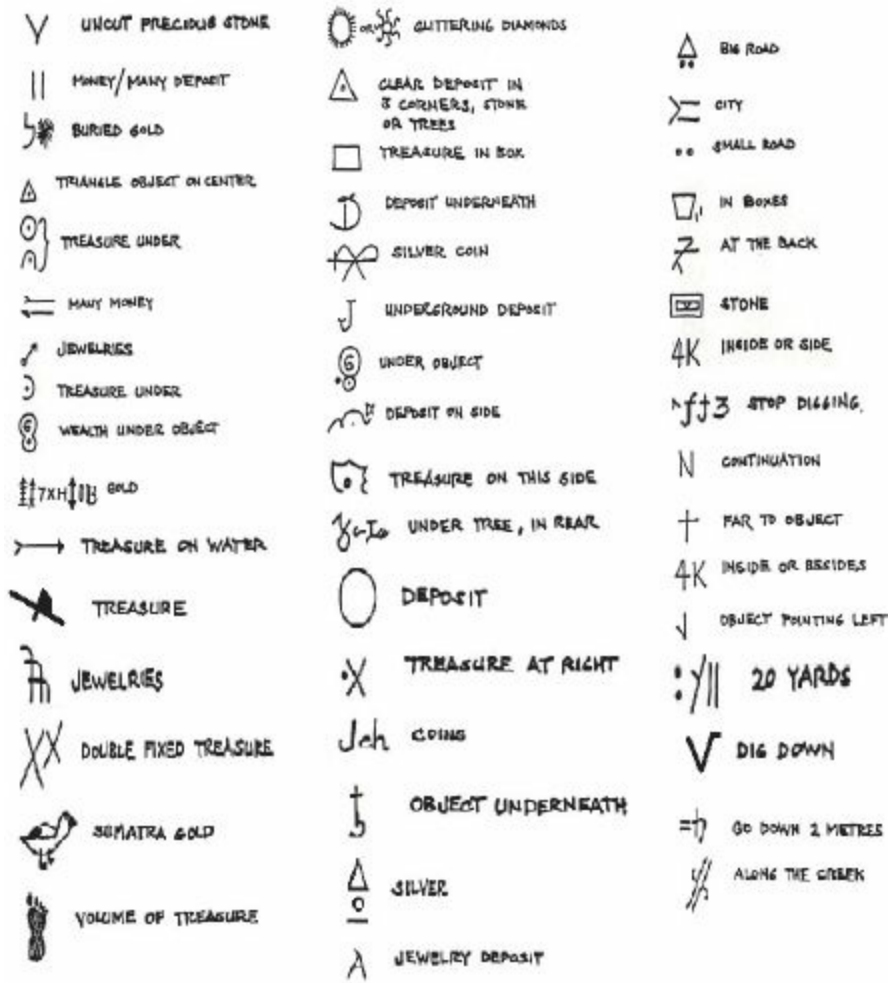 UNCUT PRECIOUS STONE
MONEY/MANY DEPOSIT
BURIED GOLD
TRIANGLE OBJECT ON CENTER
TREASURE UNDER
MANY MONEY
JEWELRIES
TREASURE UNDER
6 WEALTH UNDER OBJECT
7XH GOLD
TREASURE ON WATER
TREASURE
JEWELRIES
XX DOUBLE FIXED TREASURE
SUMATRA GOLD
VOLUME OF TREASURE
OR GLITTERING DIAMONDS
CLEAR DEPOSIT IN
3 CORNERS, STONE
OR TREES
TREASURE IN BOX
DEPOSIT UNDERNEATH
SILVER COIN
J UNDERGROUND DEPOSIT
6 UNDER OBJECT
DEPOSIT ON SIDE
TREASURE ON THIS SIDE
UNDER TREE, IN REAR
DEPOSIT
TREASURE AT RIGHT
Jch COINS
OBJECT UNDERNEATH
SILVER
JEWELRY DEPOSIT
BIG ROAD
CITY
SMALL ROAD
IN BOXES
AT THE BACK
STONE
4K INSIDE OR SIDE
STOP DIGGING.
N CONTINUATION
FAR TO OBJECT
4K INSIDE OR BESIDES
OBJECT POINTING LEFT
20 YARDS
DIG DOWN
GO DOWN 2 METRES
ALONG THE CREEK